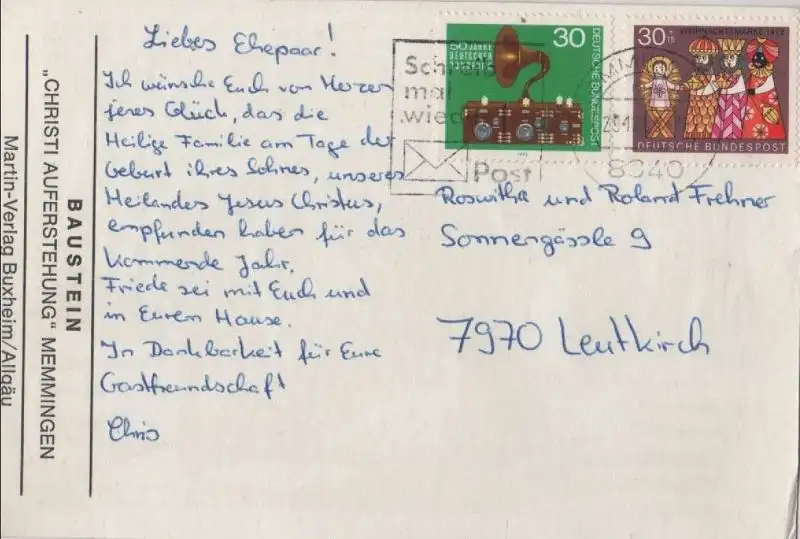 Liebes Ehepaar!
Ich wünsche Euch von Herzen
jenes Glück, das die
Heilige Familie am Tage der
Geburt ihres Sohnes, unseres
Heilandes Jesus Christus,
empfunden haben für das
kommende Jahr.
Friede sei mit Euch und
in Eurem Hause.
In Dankbarkeit für Eure
Gastfreundschaft
Chris
BAUSTEIN
„CHRISTI AUFERSTEHUNG" MEMMINGEN
Martin-Verlag Buxheim/Allgäu
50 JAHRE
DEUTSCHER
RUNDFUNK
30
DEUTSCHE BUNDESPOST
WEIHNACHTSMARKE 1972
30+15
DEUTSCHE BUNDESPOST
Schreib
mal
wieder
Post
8940
Roswitha und Roland Frehner
Sonnengässle 9
7970 Leutkirch